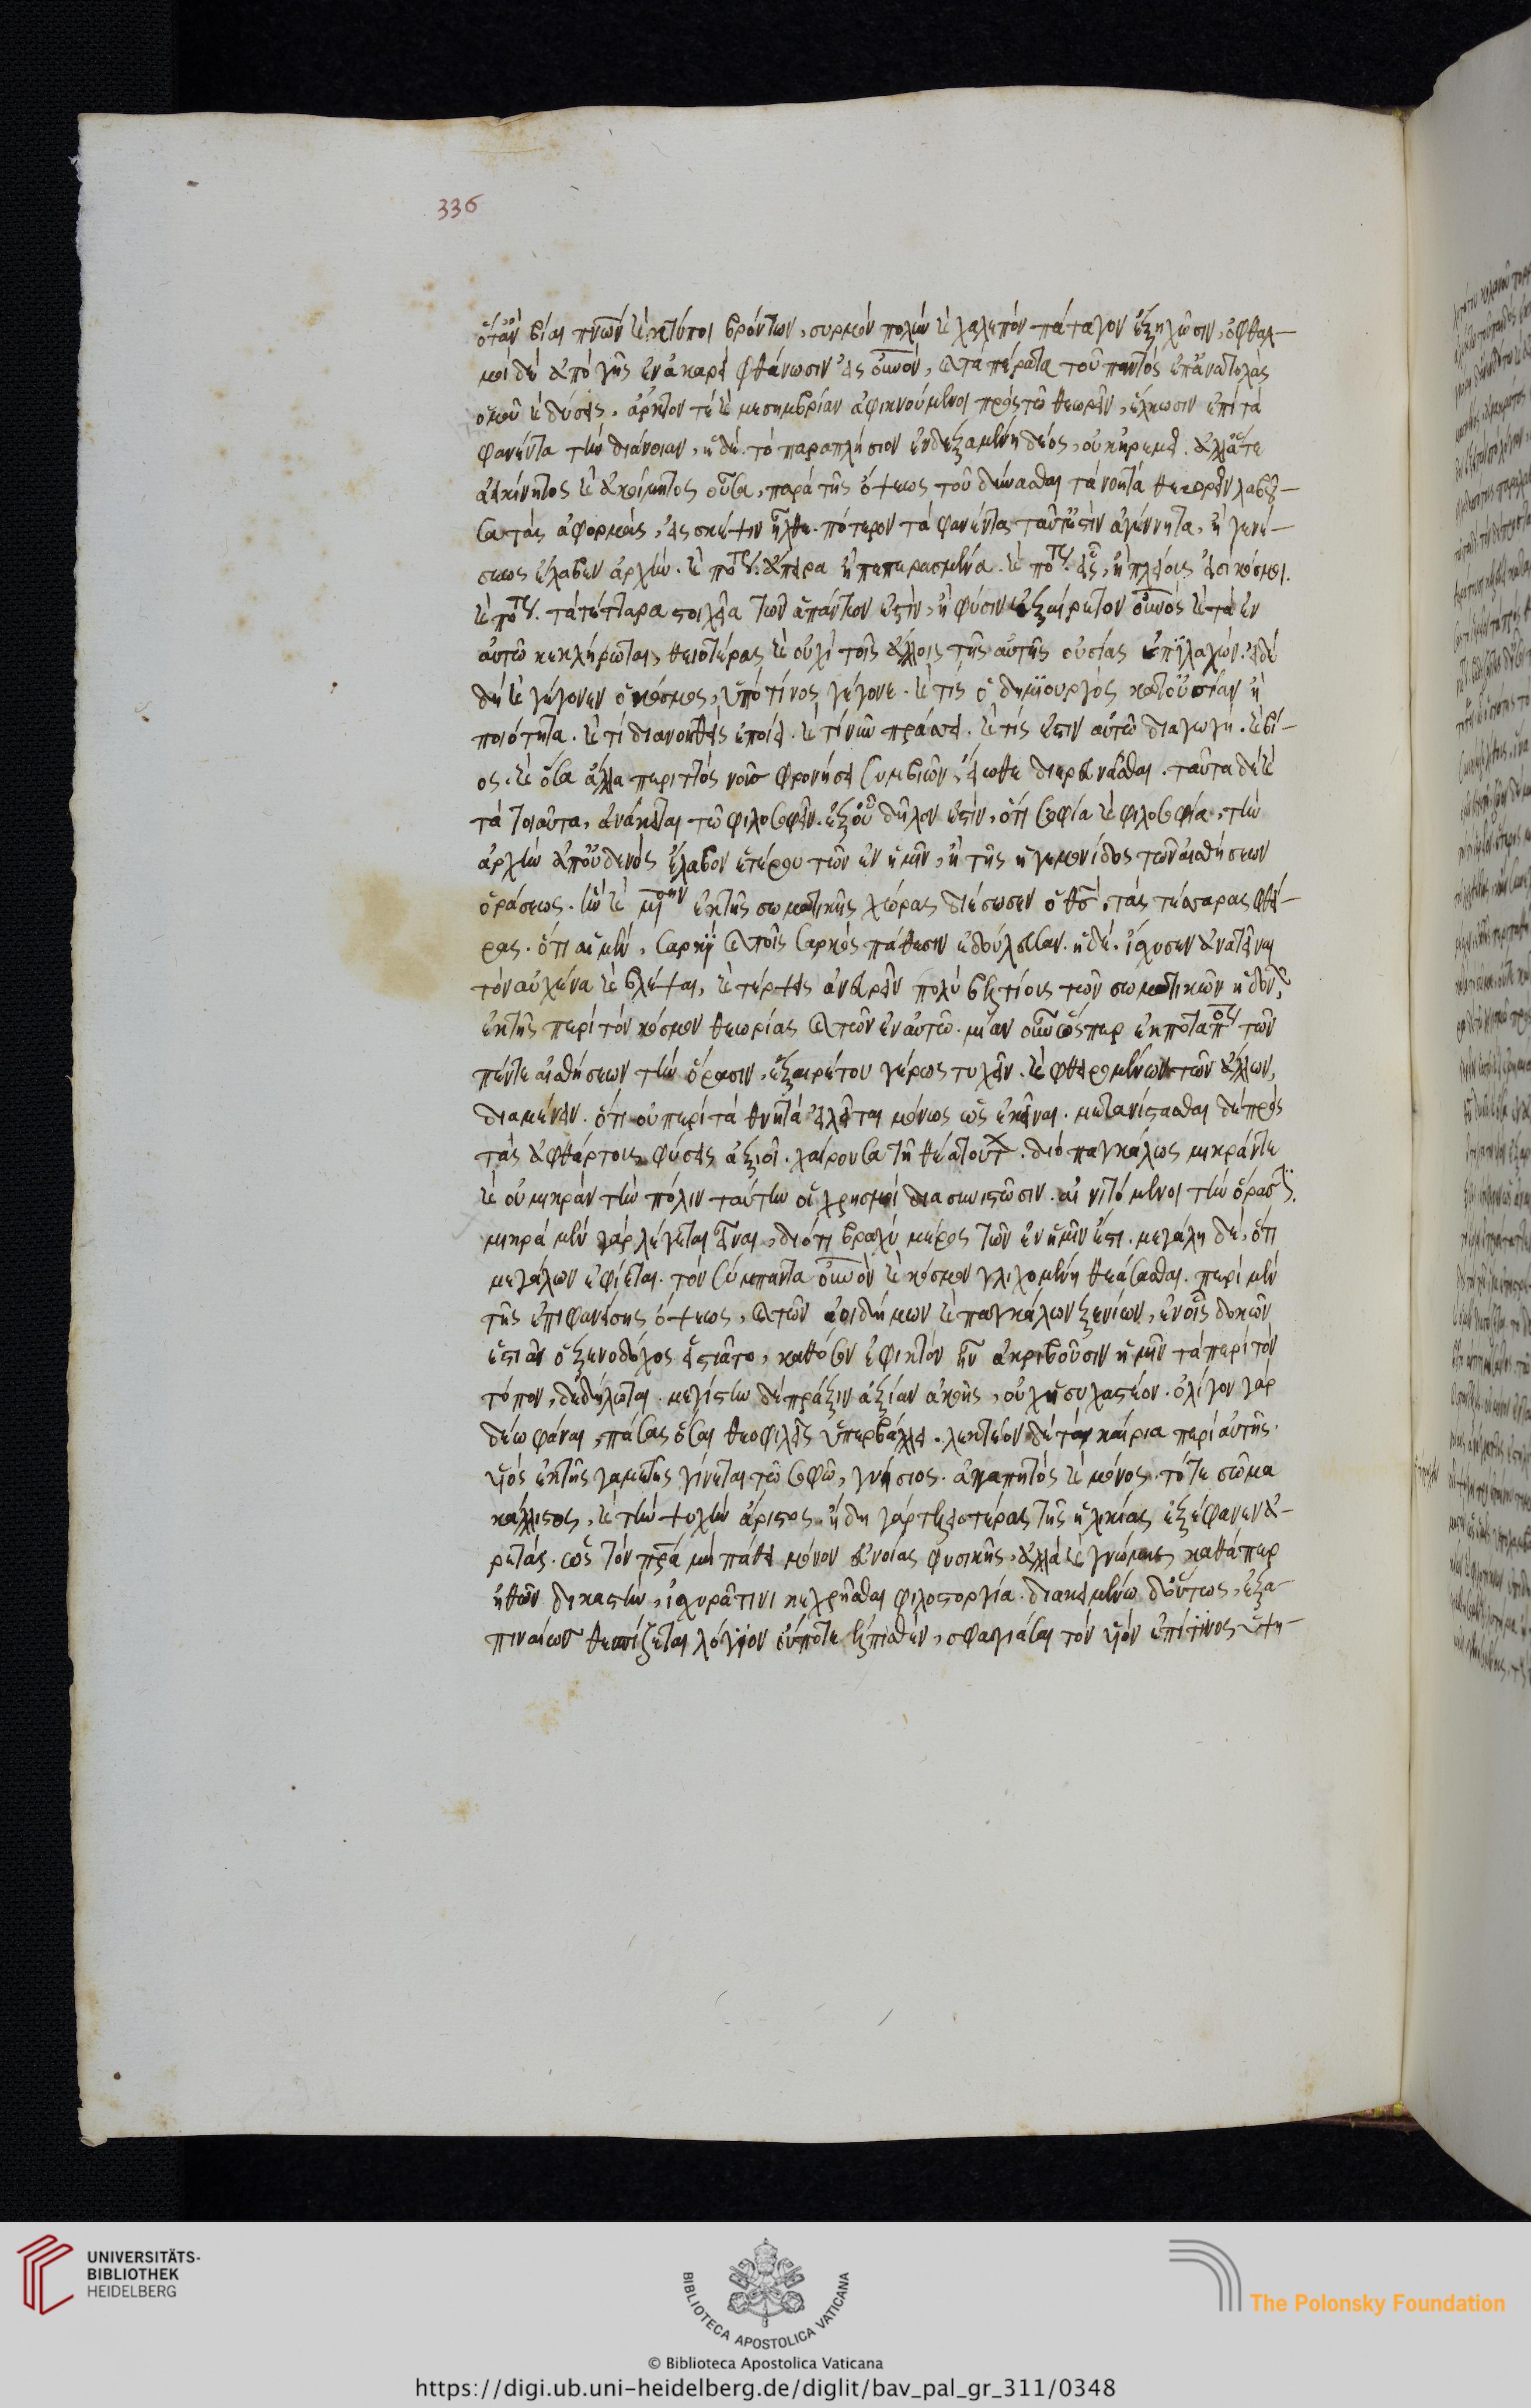 336
ὅταν βίαι πνῶν καὶ κτύποι βρόντων, συρμὸν πολὺν καὶ χαλεπὸν πάταγον ἐξηχῶσιν, ὀφθαλ-
μοὶ δὲ ἀπὸ γῆς ἐν ἀκαρεῖ φθάνωσιν εἰς οὐνόν, καὶ τὰ πέρατα τοῦ παντὸς ἐπ' ἀνατολὰς
ὁμοῦ καὶ δύσεις, ἄρκτον τὲ καὶ μεσημβρίαν ἀφικνούμενοι πρὸς τὸ θεωρεῖν, ἕλκωσιν ἐπὶ τὰ
φανέντα τὴν διάνοιαν, ἡ δὲ τὸ παραπλήσιον ἐνδεξαμένη δέος, οὐκ ἠρεμεῖ. ἀλλ' ἅτε
ἀεικίνητος καὶ ἀκοίμητος οὖσα, παρὰ τῆς ὄψεως τοῦ δύνασθαι τὰ νοητὰ θεωρεῖν λαβοῦ-
σα τὰς ἀφορμὰς, εἰς σκέψιν ἦλθε. πότερον τὰ φανέντα ταῦτ' ἐστὶν ἀγέννητα, ἢ γενέ-
σεως ἔλαβεν ἀρχήν. καὶ ποτ. ἄπειρα ἢ πεπερασμένα. καὶ ποτ. εἷς, ἢ πλείους εἰσὶ κόσμοι.
καὶ ποτ. τὰ τέτταρα στοιχεῖα τῶν ἁπάντων ἐστὶν, ἢ φύσιν ἐξαίρετον οὐνὸς καὶ τὰ ἐν
αὐτῶ κεκλήρωται, θειοτέρας καὶ οὐχὶ τοῖς ἄλλοις τῆς αὐτῆς οὐσίας ἐπιλαχών. εἰ δὲ
δὴ καὶ γέγονεν ὁ κόσμος, ὑπό τίνος γέγονε. καὶ τίς ὁ δημιουργὸς κατ' οὐσίαν ἢ
ποιότητα. καὶ τί διανοηθεὶς ἐποίει. καὶ τί νῦν πράττει. καὶ τίς ἐστιν αὐτῶ διαγωγή. καὶ βί-
ος. καὶ ὅσα ἄλλα περιττὸς νοῦς φρονήσει συμβιῶν, εἴωθε διερευνᾶσθαι. ταῦτα δὲ καὶ
τὰ τοιαῦτα, ἀνάκειται τῶ φιλοσοφεῖν. ἐξ οὗ δῆλον ἐστὶν, ὅτι σοφία καὶ φιλοσοφία, τὴν
ἀρχὴν ἀπ' οὐδενὸς ἔλαβον ἑτέρου τῶν ἐν ἡμῖν, ἢ τῆς ἡγεμονίδος τῶν αἰσθήσεων
ὁράσεως. ἣν καὶ μόνην ἐκ τῆς σωματικῆς χώρας διέσωσεν ὁ θς, τὰς τέσσαρας φθεί-
ρας. ὅτι αἱ μὲν, σαρκὶ καὶ τοῖς σαρκὸς πάθεσιν ἐδούλευσαν. ἡ δὲ ἴσχυσεν ἀνατεῖναι
τὸν αὐχένα καὶ βλέψαι, καὶ τέρψεις ἀνευρεῖν πολὺ βελτίους τῶν σωματικῶν ἡδονῶν,
ἐκ τῆς περὶ τὸν κόσμον θεωρίας καὶ τῶν ἐν αὐτῶ. μίαν οὖν ὥσπερ ἐκ πενταπόλεως τῶν
πέντε αἰσθήσεων τὴν ὅρασιν, ἐξαιρέτου γέρως τυχεῖν. καὶ φθειρομένων τῶν ἄλλων,
διαμένειν. ὅτι οὐ περὶ τὰ θνητὰ εἰλεῖται μόνως ὡς ἐκεῖναι. μετανίστασθαι δὲ πρὸς
τὰς ἀφθάρτους φύσεις ἀξιοῖ. χαίρουσα τῆ θέα τούτων. διὸ παγκάλως μικράν τε
καὶ οὐ μικρὰν τὴν πόλιν ταύτην οἱ χρησμοὶ διασυνιστῶσιν. αἰνιττόμενοι τὴν ὅρασιν.
μικρὰ μὲν γὰρ λέγεται εἶναι, διότι βραχὺ μέρος τῶν ἐν ἡμῖν ἐστι. μεγάλη δὲ, ὅτι
μεγάλων ἐφίεται. τὸν σύμπαντα οὐνὸν καὶ κόσμον γλιχομένη θεάσασθαι. περὶ μὲν
τῆς ἐπιφανείσης ὄψεως, καὶ τῶν ἀοιδήμων καὶ παγκάλων ξενίων, ἐν οἷς δοκῶν
ἑστιᾶν ὁ ξενοδόχος εἱστιᾶτο, καθόσον ἐφικτὸν ἦν ἀκριβοῦσιν ἡμῖν τὰ περὶ τὸν
τόπον, δεδήλωται. μεγίστην δὲ πρᾶξιν ἀξίαν ἀκοῆς, οὐχ ἡσυχαστέον. ὀλίγον γὰρ
δέω φάναι, πάσας ὅσαι θεοφιλεῖς ὑπερβάλλει. λεκτέον δὲ τὰ καίρια περὶ αὐτῆς.
υἱὸς ἐκ τῆς γαμετῆς γίνεται τῶ σοφῶ, γνήσιος. ἀγαπητὸς καὶ μόνος. τό τε σῶμα
κάλλιστος, καὶ τὴν ψυχὴν ἄριστος. ἤδη γὰρ τελειοτέρας τῆς ἡλικίας ἐξέφαινεν ἀ-
ρετάς. ὡς τὸν πρα μὴ πάθει μόνον εὐνοίας φυσικῆς, ἀλλὰ καὶ γνώμης καθάπερ
ἠθῶν δικαστὴν, ἰσχυρᾶ τινι κεχρῆσθαι φιλοστοργία. διακειμένω δ' οὕτως, ἐξα-
πιναίως θεσπίζεται λόγιον οὔποτε ἐλπισθὲν, σφαγιάσαι τὸν υἱὸν ἐπί τινος ὑψη-
UNIVERSITÄTS-
BIBLIOTHEK
HEIDELBERG
BIBLIOTECA APOSTOLICA VATICANA
The Polonsky Foundation
© Biblioteca Apostolica Vaticana
https://digi.ub.uni-heidelberg.de/diglit/bav_pal_gr_311/0348